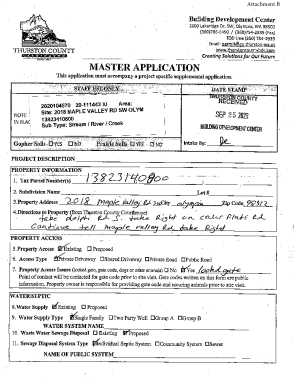 Attachment B
THURSTON COUNTY
WASHINGTON
Building Development Center
2000 Lakeridge Dr. SW, Olympia, WA 98502
(360)786-5490 / (360)754-2939 (Fax)
TDD Line (360) 754-2933
Email: permit@co.thurston.wa.us
www.thurstoncountybdc.com
Creating Solutions for Our Future
MASTER APPLICATION
This application must accompany a project specific supplemental application.
STAFF USE ONLY
DATE STAMP
2020104570 20-111443 IU Area:
Site: 2018 MAPLE VALLEY RD SW OLYM
13823410800
Sub Type: Stream / River / Creek
NOTE:
THURSTON COUNTY
RECEIVED
SEP 25 2020
BUILDING DEVELOPMENT CENTER
Gopher Soils YES NO Prairie Soils YES NO
Intake By:
PROJECT DESCRIPTION
PROPERTY INFORMATION
1. Tax Parcel Number(s) 13823410800
2. Subdivision Name Lot #
3. Property Address 2018 Maple valley Rd SW City olympia Zip Code 98512
4. Directions to Property (from Thurston County Courthouse)
Take Delphi Rd S. take Right on cedar Flats Rd
Continue tell Maple valley Rd take Right
PROPERTY ACCESS
5. Property Access Existing Proposed
6. Access Type Private Driveway Shared Driveway Private Road Public Road
7. Property Access Issues (locked gate, gate code, dogs or other animals) No Yes locked gate
Point of contact will be contacted for gate code prior to site visit. Gate codes written on this form are public information.
Property owner is responsible for providing gate code and securing animals prior to site visit.
WATER/SEPTIC
8. Water Supply Existing Proposed
9. Water Supply Type Single Family Two Party Well Group A Group B
WATER SYSTEM NAME
10. Waste Water Sewage Disposal Existing Proposed
11. Sewage Disposal System Type Individual Septic System Community System Sewer
NAME OF PUBLIC SYSTEM